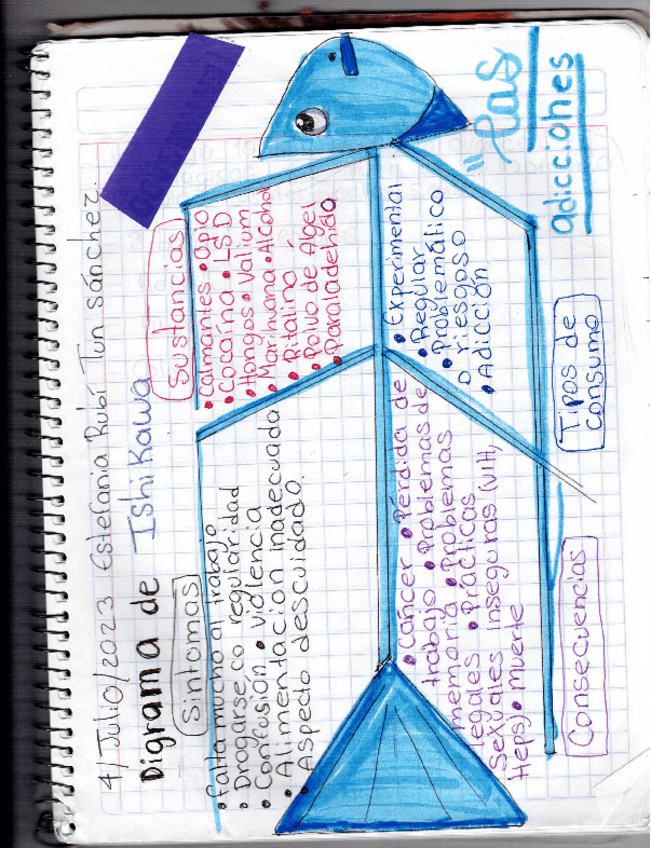 4/Julio/2023 Estefania Rubí Tun sánchez.
Digrama de
Ishikawa
Síntomas
• Falta mucho al trabajo
• Drogarse co regularidad
• Confusión • violencia
• Alimentación inadecuada
• Aspecto descuidado.
Sustancias
• calmantes • Opio
• Cocaína • LSD
• Hongos • Valium
• Marihuana • Alcohol
• Ritalino
• Polvo de Ángel
• Paraladehido
"Las
adicciones
• Cáncer • Pérdida de
trabajo • Problemas de
memoria • Problemas
legales • Prácticas
Sexuales inseguras (VIH,
Heps) • Muerte
Consecuencias
• Experimental
• Regular
• Problemático
o riesgoso
• Adicción
Tipos de
consumo